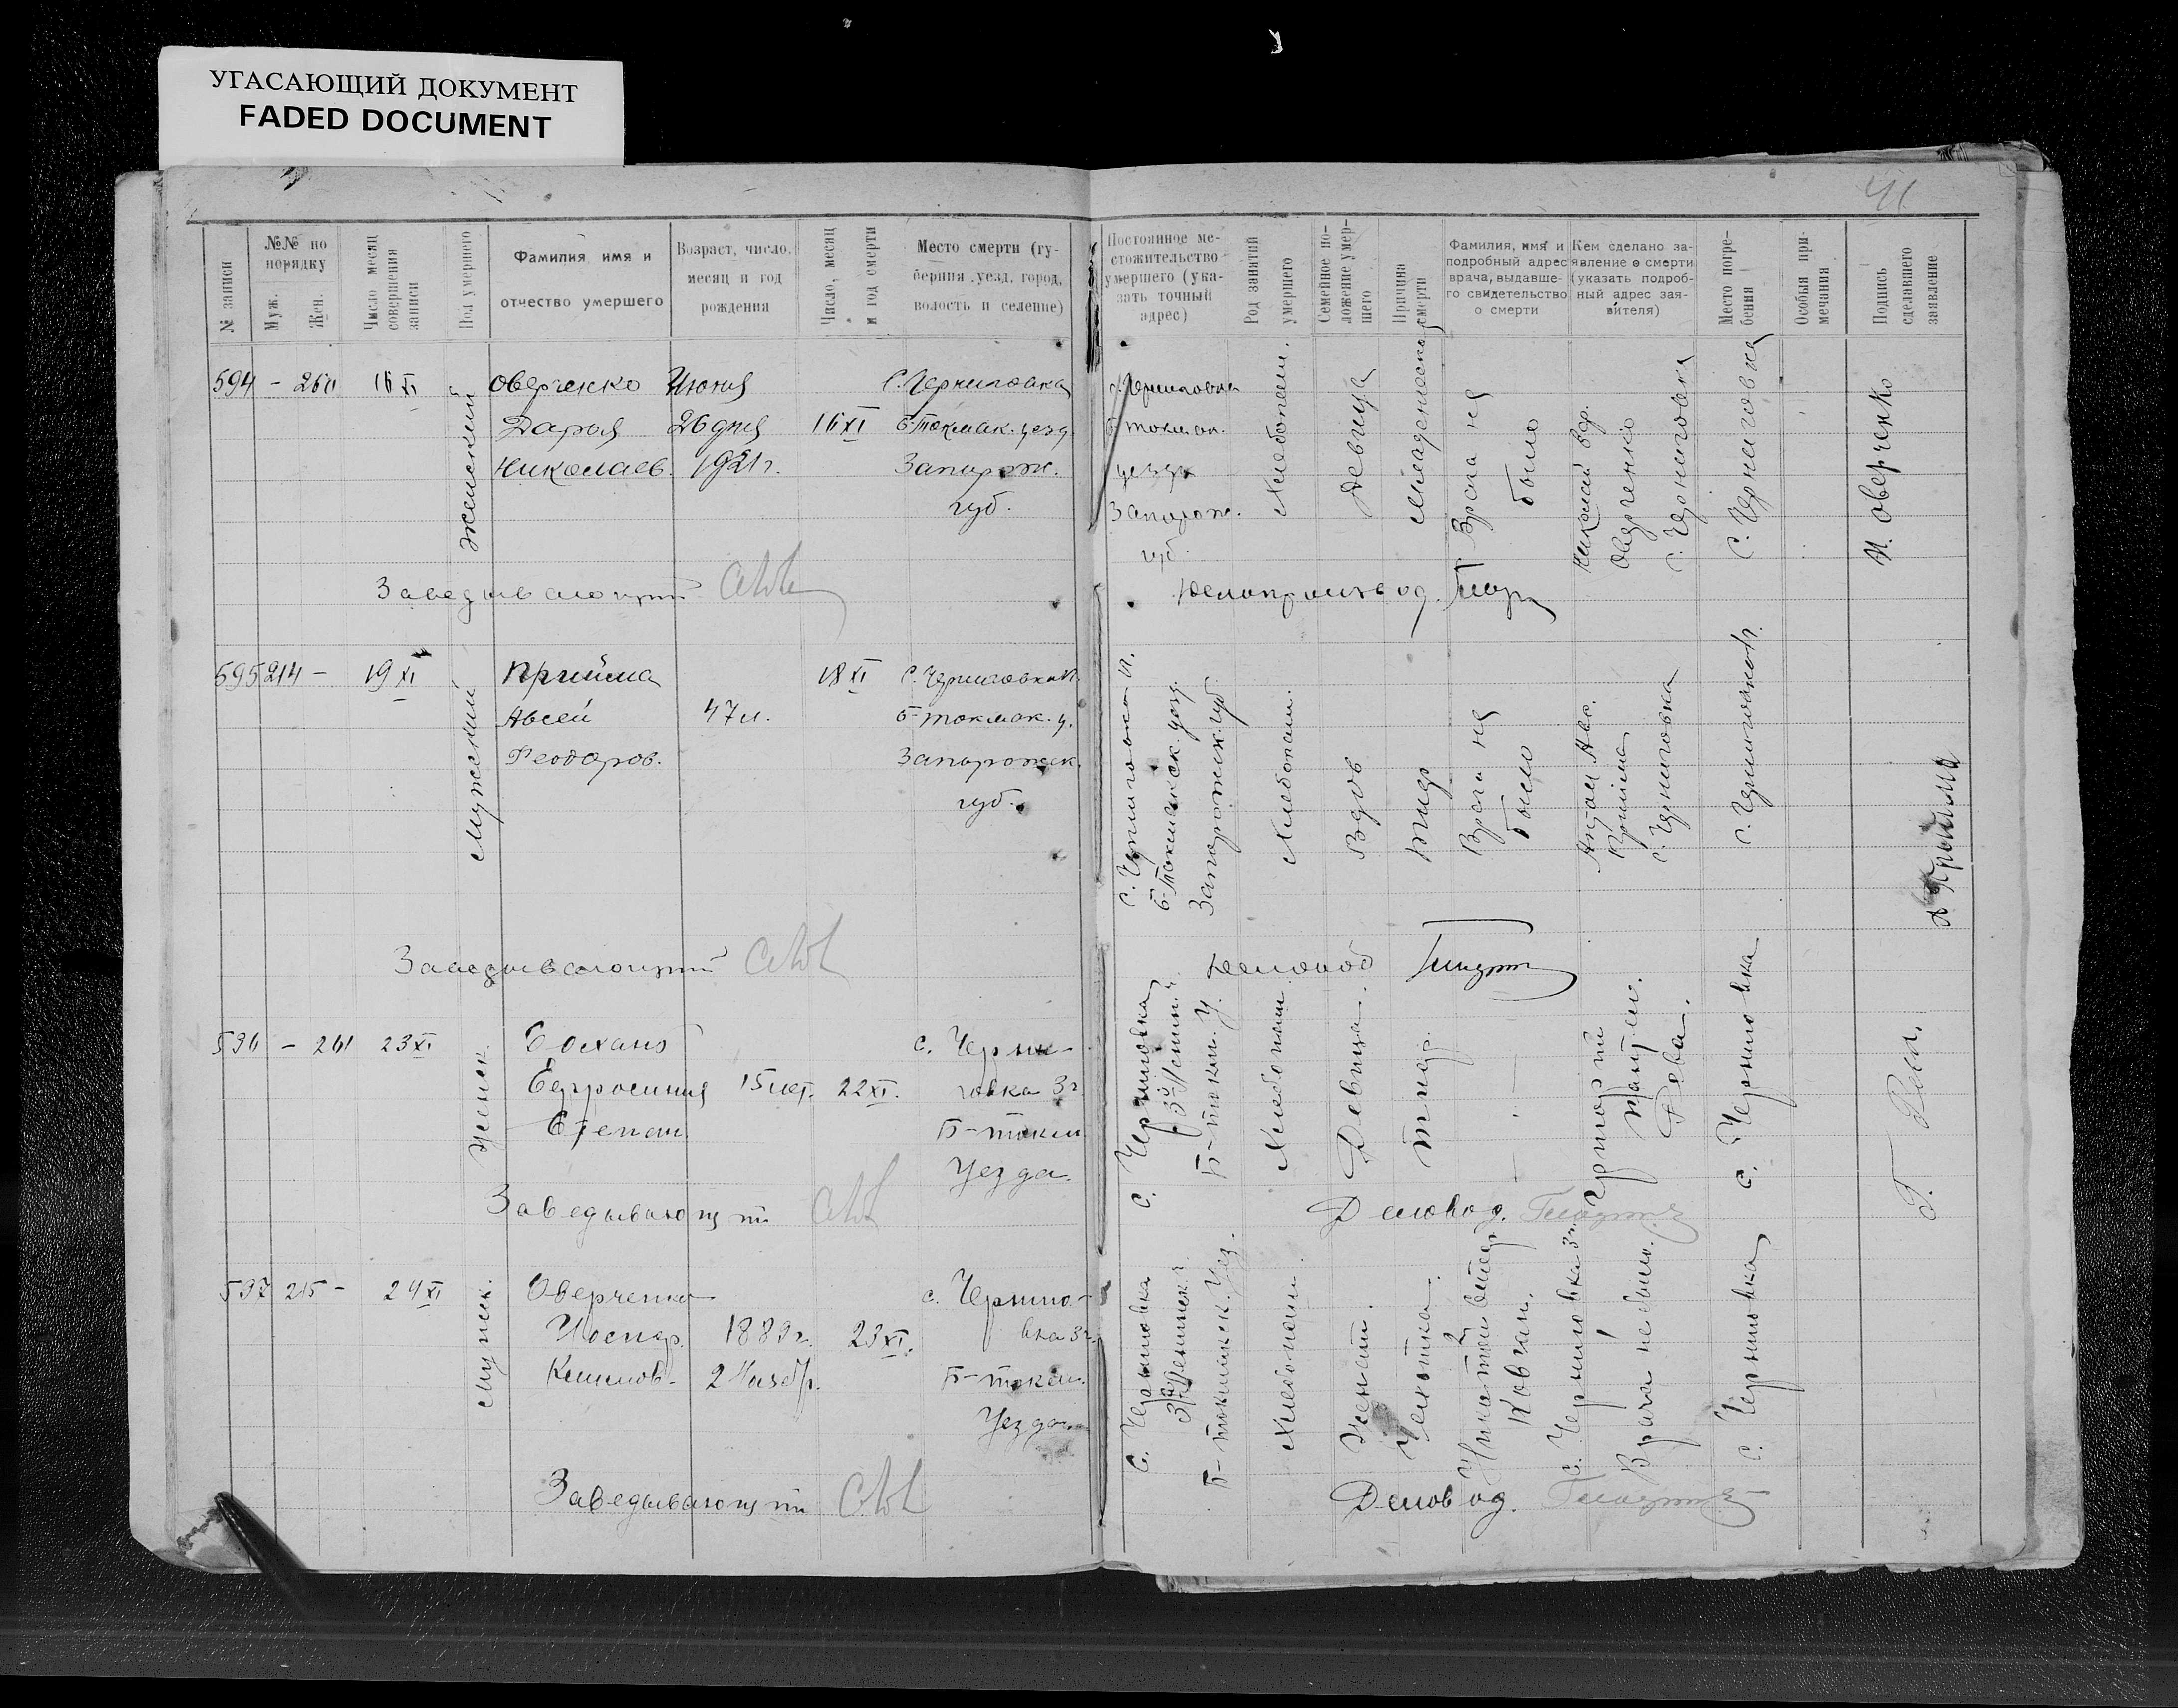 УГАСАЮЩИЙ ДОКУМЕНТ
FADED DOCUMENT
41
№ записи
№№ по порядку
Муж.
Жен.
Число месяц совершения записи
Пол умершего
Фамилия имя и отчество умершего
Возраст, число, месяц и год рождения
Число, месяц и год смерти
Место смерти (губерния, уезд, город, волость и селение)
Постоянное местожительство умершего (указать точный адрес)
Род занятий умершего
Семейное положение умершего
Причина смерти
Фамилия, имя и подробный адрес врача, выдавшего свидетельство о смерти
Кем сделано заявление о смерти (указать подробный адрес заявителя)
Место погребения
Особыя примечания
Подпись сделавшего заявление
594 - 260 16 XI
Женский
Оверченко
Дарья
Николаев.
Июня
26 дня
1921 г.
16 XI
С. Черниговка
Б-Токмак. уезд.
Запорож.
губ.
с. Черниговка
Б-Токмак.
уезда
Запорож.
губ.
Хлебопаш.
Девица
Младенческая
Врача не
было
Николай
Оверченко
с. Черниговка
С. Черниговка
Н. Оверченко
Заведывающий
Делопроизвод.
595 214 - 19 XI
Мужской
Прийма
Авсей
Феодоров.
47 л.
18 XI
С. Черниговка
Б-Токмак. у.
Запорожск.
губ.
с. Черниговка
Б-Токмакск. уезд.
Запорожск. губ.
Хлебопаш.
Вдов
Тиф
Врача не
было
Прийма
с. Черниговка
с. Черниговка
Прийма
Заведывающий
Деловод
596 - 261 23 XI
Женск.
Ефросиния
Степан.
15 лет.
22 XI.
с. Черни-
говка 3 г
Б-токм
Уезда.
с. Черниговка
Б-токм. У.
Хлебопаш.
Девица.
Тиф.
с. Черниговка
Заведывающий
Деловод.
597 215 - 24 XI
Мужск.
Оверченко
Иосиф.
Климов.
1889 г.
2 Ноябр.
23 XI.
с. Черниго-
вка 3 г.
Б-токм.
Уезда
с. Черниговка
Б-токмакск. Уез.
Хлебопаш.
Женат.
Чахотка.
Ковган.
с. Черниговка 3 г.
Врача не было.
с. Черниговка
Заведывающий
Деловод.